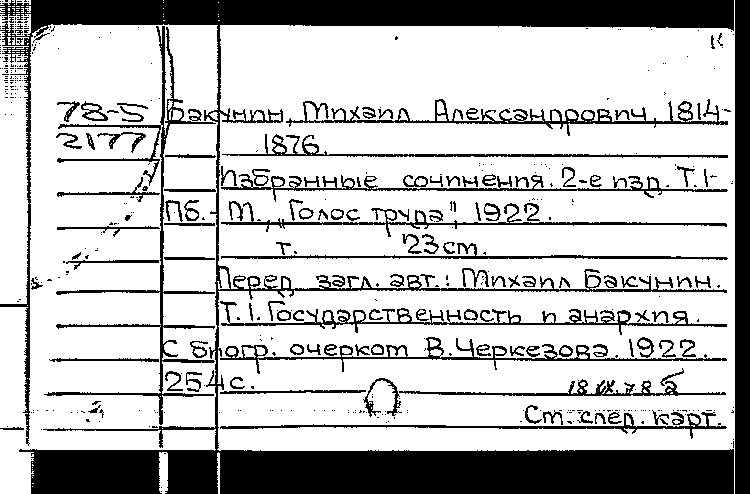 78-5 Бакунин, Михаил Александрович, 1814-
2177 1876.
Избранные сочинения. 2-е изд. Т.1-
Пб.- М., „Голос труда", 1922.
т. 23 см.
Перед загл. авт.: Михаил Бакунин.
Т.1. Государственность и анархия.
С биогр. очерком В. Черкезова. 1922.
254 с.
См. след. карт.